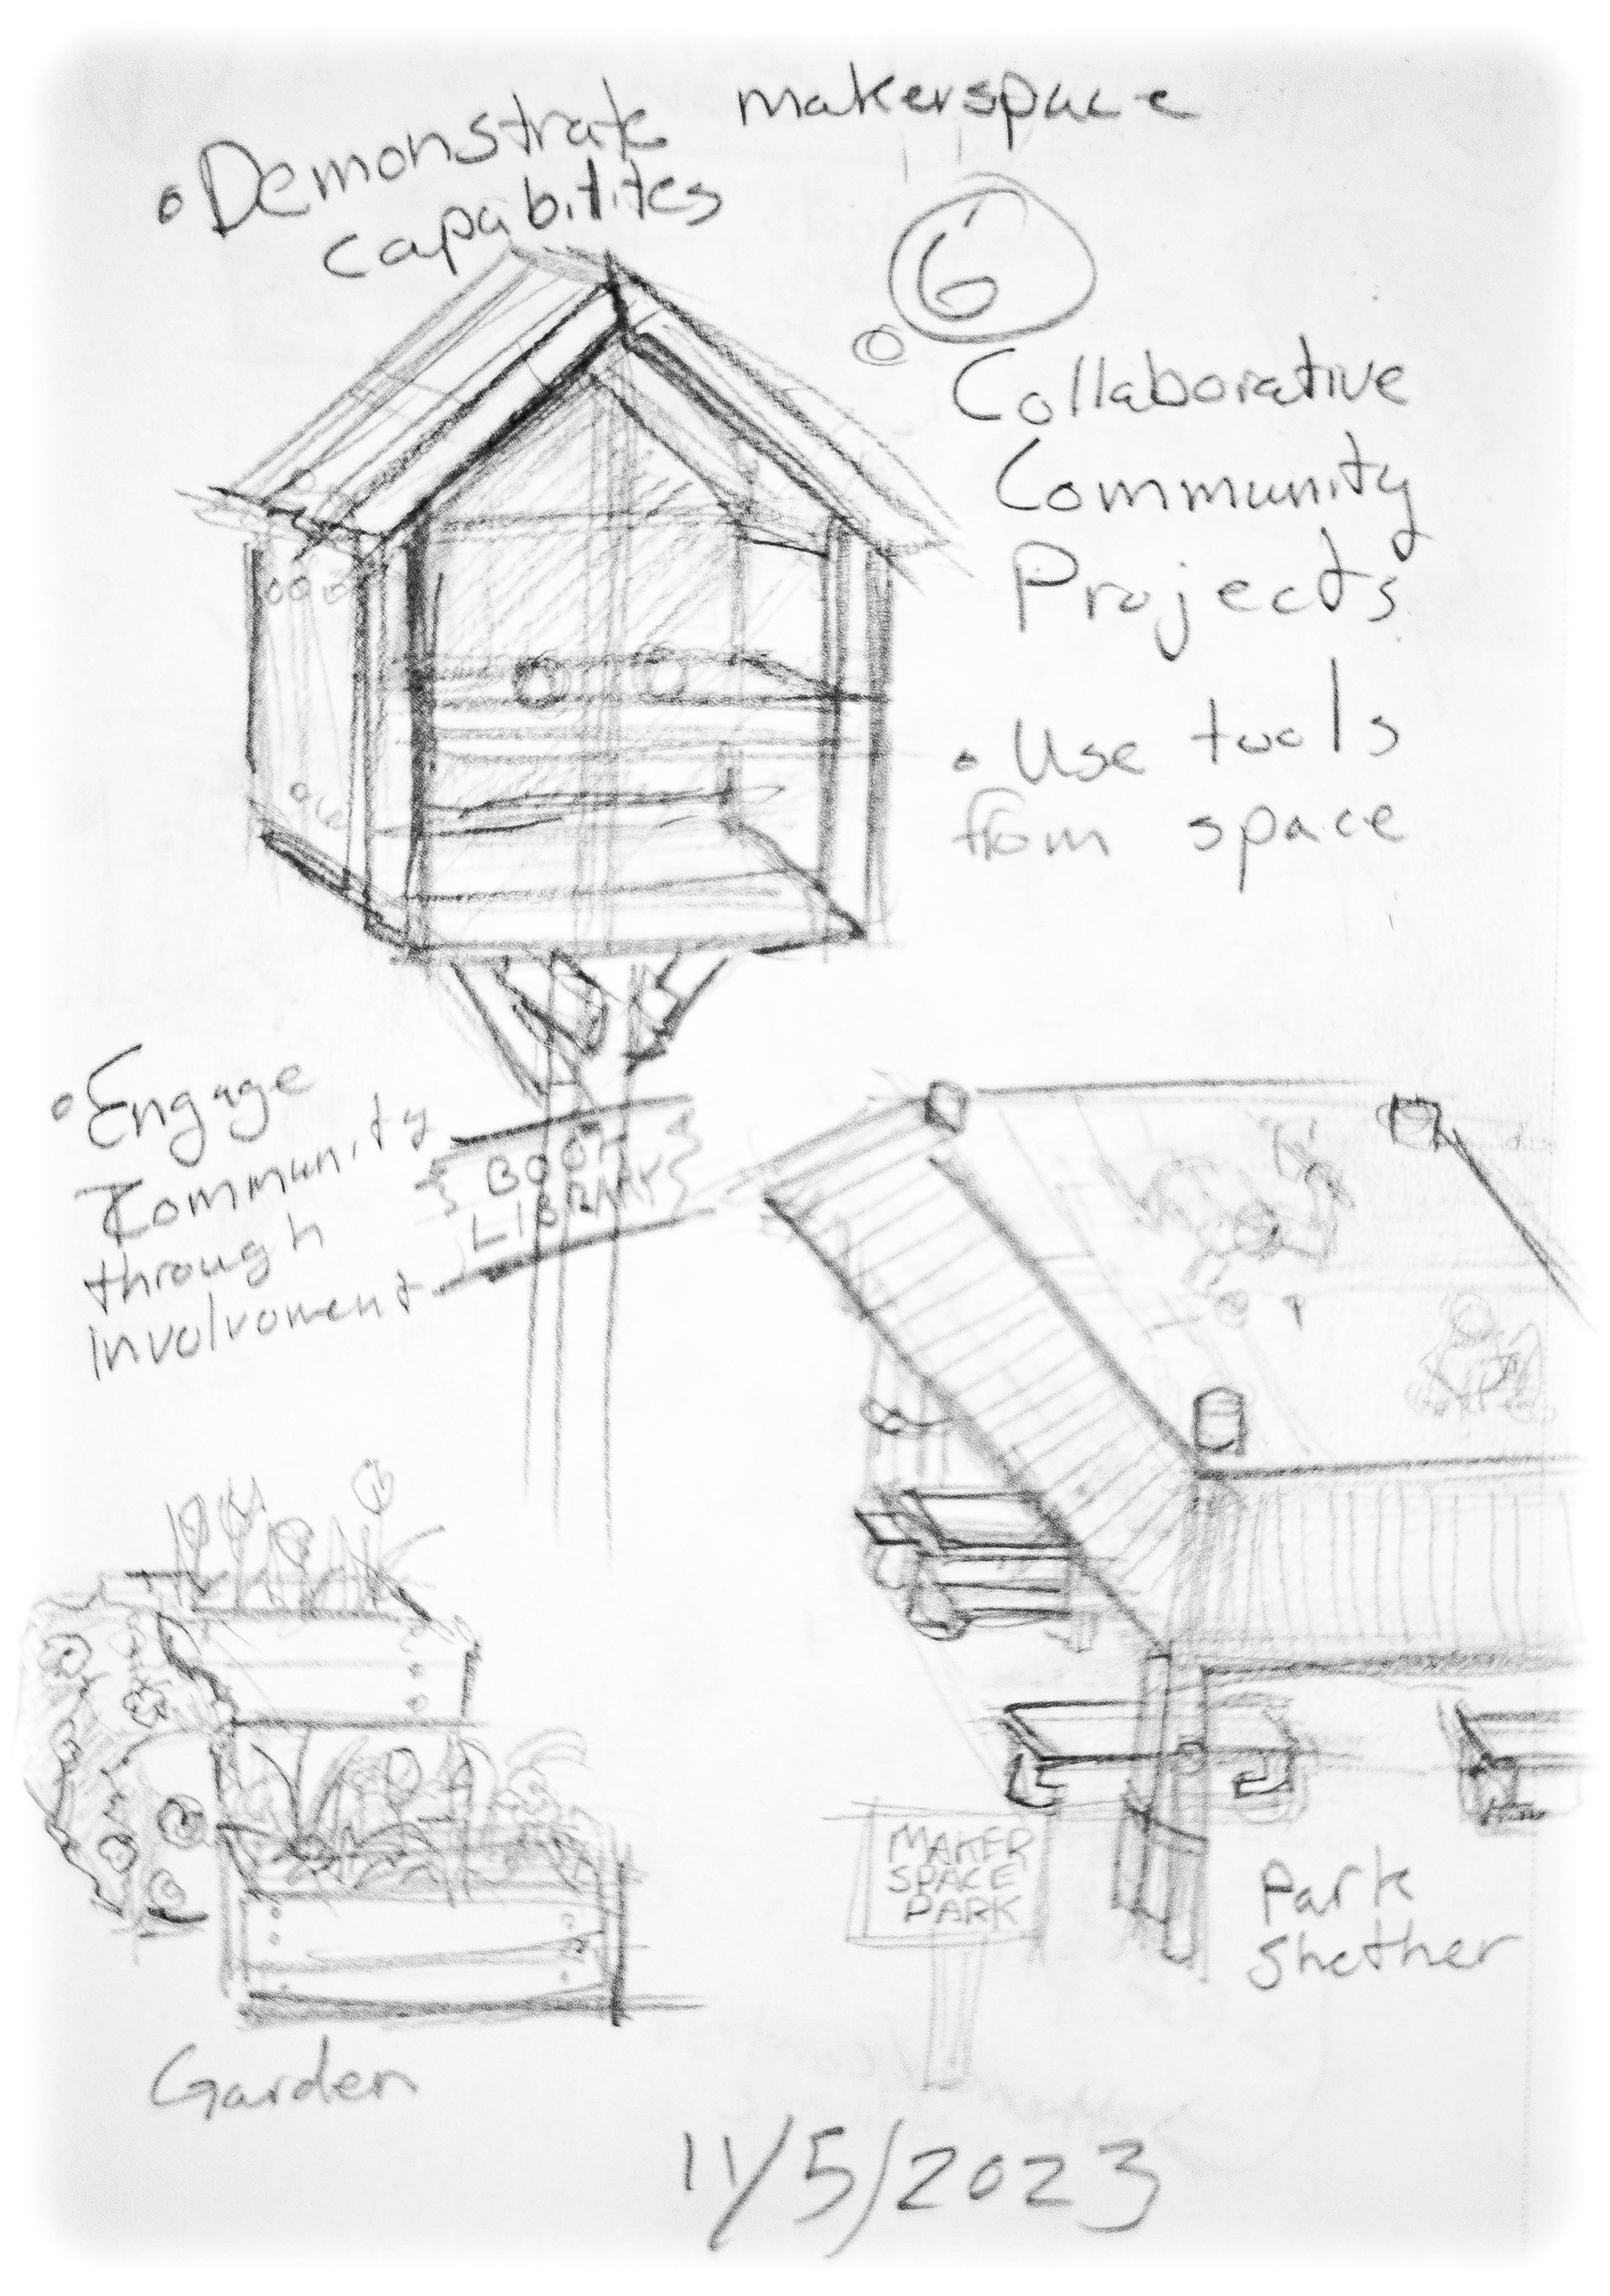 makerspace
• Demonstrate
capabitites
6
Collaborative
Community
Projects
• Use tools
from space
• Engage
Community
through
involvoment
BOOK
LIBRARY
MAKER
SPACE
PARK
Park
Shether
Garden
11/5/2023